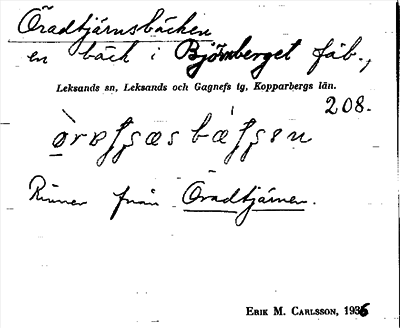 Öradtjärnsbäcken
en bäck i Björnberget fäb.,
Leksands sn, Leksands och Gagnefs tg, Kopparbergs län.
208.
Rinner från Öradtjärnen.
Erik M. Carlsson, 1936